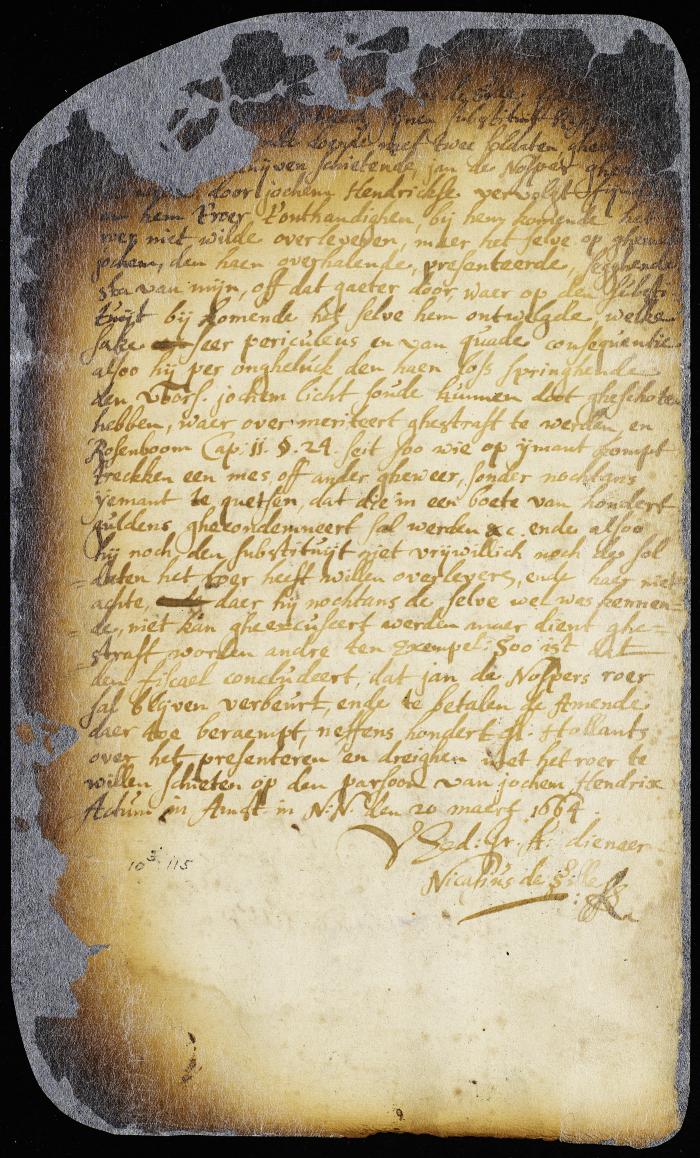 sijnen substituijt
doende met twee soldaten
duijven schietende, jan de Nosper
door jochem Hendrickse vervolgt
en hem t'roer t'onthandighen, bij hem komende het
roer niet wilde overleveren, maer het selve op
jochem, den haen overhalende, presenteerde, segghende
sta van mijn, off dat gaeter door, waer op den subst
tuijt bij komende het selve hem ontweldde welke
sake seer periculeus en van quade consequentie
alsoo hij per ongheluck den haen loss springhende
den voors. jochem licht soude kunnen doot gheschoten
hebben, waer over meriteert ghestraft te werden, en
Rosenboom Cap. 11. §. 24. seit soo wie op ijmant kompt
treckken een mes, off ander gheweer, sonder nochtans
ijemant te quetsen, dat die in een boete van hondert
guldens ghecondemneert sal werden &c. ende alsoo
hij noch den substituijt niet vrijwillich noch de sol
=daten het roer heeft willen overlevers, ende haer niet
achte, daer hij nochtans de selve wel was kennen=
=de, niet kan gheexcuseert werden maer dient ghe=
=straft worden andre ten exempel. Soo ist dat
den fiscael concludeert, dat jan de Nospers roer
sal blijven verbeurt, ende te betalen de Amende
daer toe beraempt, neffens hondert gl: Hollants
over het presenteren en dreighen met het roer te
willen schieten op den parsoon van jochem Hendrix
Actum in Amst in N:N. den 20 maert 1664.
V Eed: Gr. A: dienaer
Nicasius de Sille
10 3 115
9